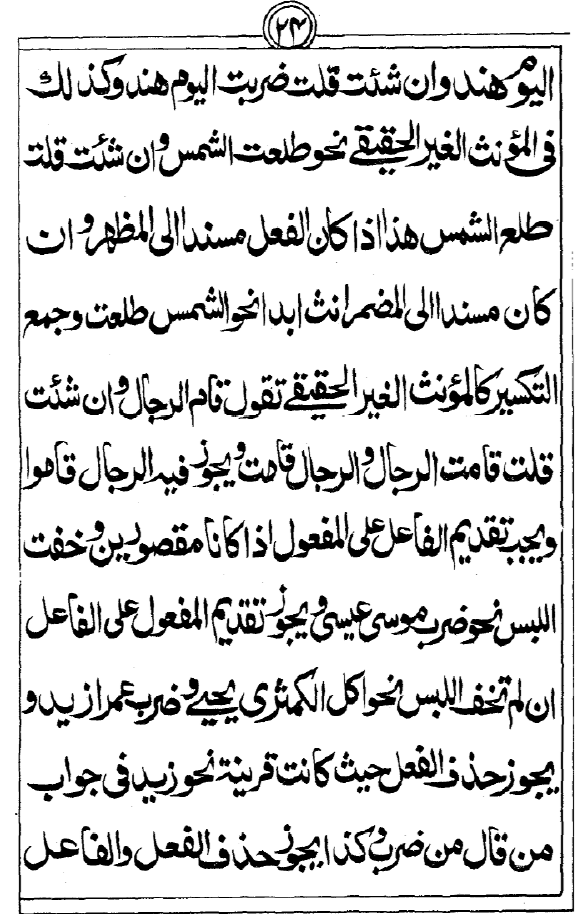 ۲۴
اليوم هند وان شئت قلت ضربت اليوم هند وكذلك
فى المؤنث الغير الحقيقے نحو طلعت الشمس وان شئت قلت
طلع الشمس هذا اذا كان الفعل مسندا الى المظهر وان
كان مسندا الى المضمر انث ابدا نحو الشمس طلعت وجمع
التكسير كالمؤنث الغير الحقيقے تقول قام الرجال وان شئت
قلت قامت الرجال والرجال قامت ويجوز فيه الرجال قاموا
ويجب تقديم الفاعل على المفعول اذا كانا مقصورين وخفت
اللبس نحو ضرب موسى عيسى ويجوز تقديم المفعول على الفاعل
ان لم تخف اللبس نحو اكل الكمثرى يحيے وضرب عمرا زيد و
يجوز حذف الفعل حيث كانت قرينة نحو زيد فى جواب
من قال من ضرب وكذا يجوز حذف الفعل والفاعل